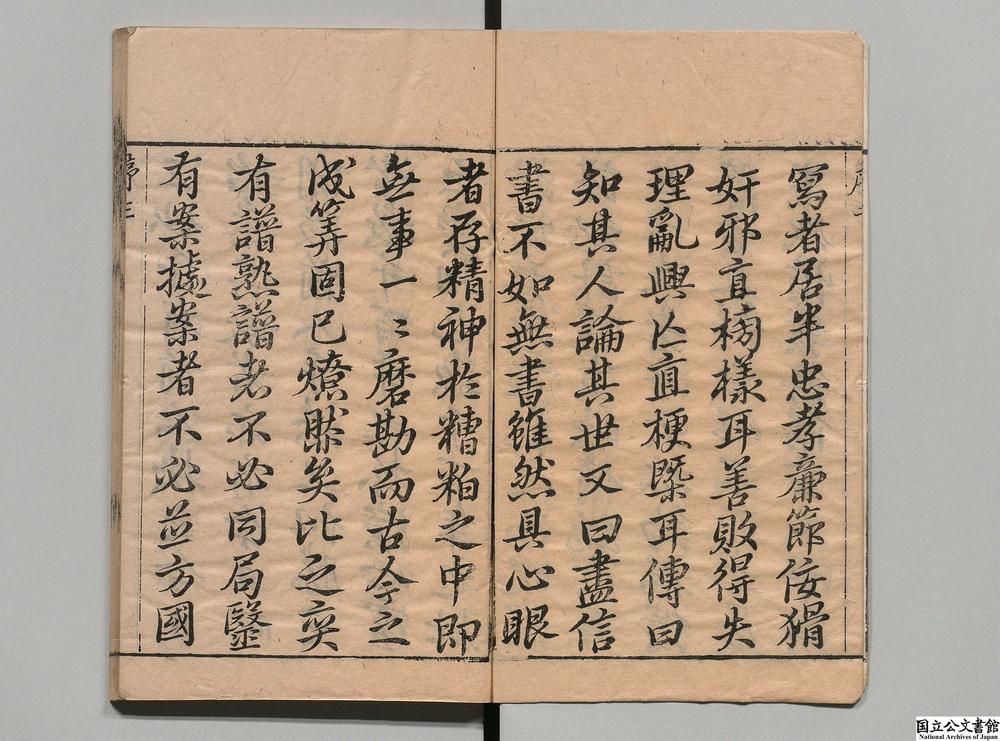 寫者居半忠孝廉節佞猾
奸邪直榜樣耳善敗得失
理亂興亾直梗槩耳傳曰
知其人論其世又曰盡信
書不如無書雖然具心眼
者存精神於糟粕之中即
無事一〻磨勘而古今之
成筭固已燎然矣比之奕
有譜熟譜者不必同局毉
有案據案者不必並方國
序三
国立公文書館
National Archives of Japan